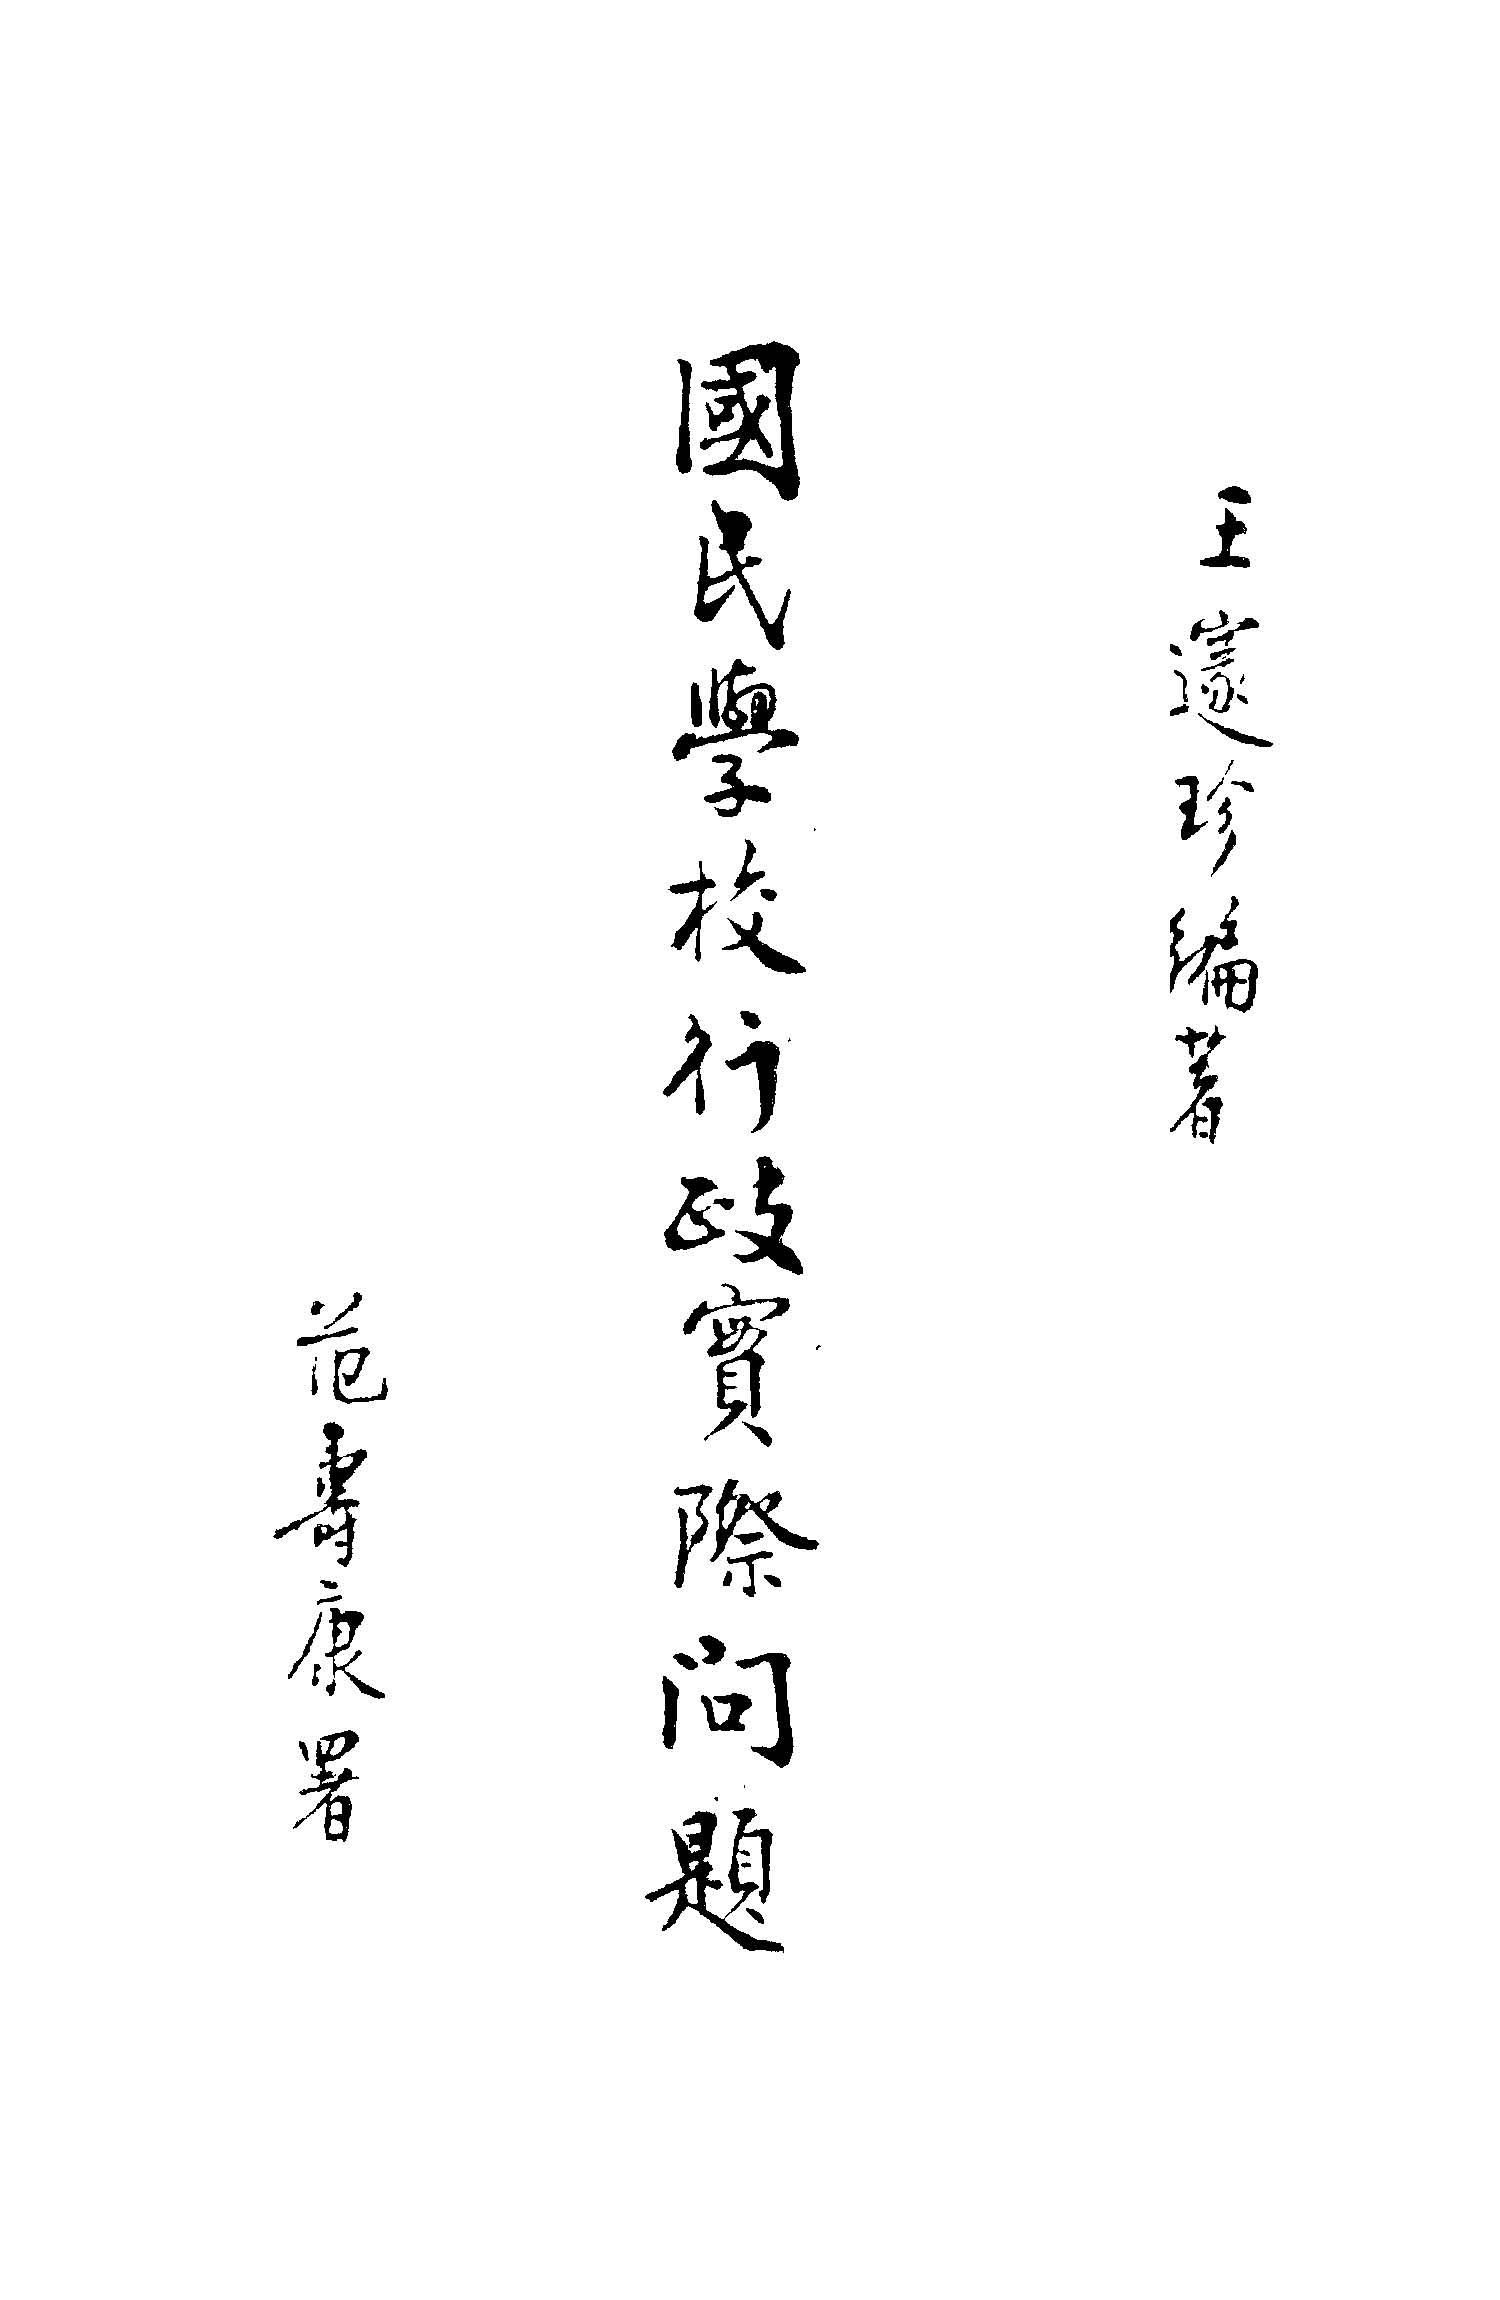 王邃珍編著
國民學校行政實際問題
范壽康署